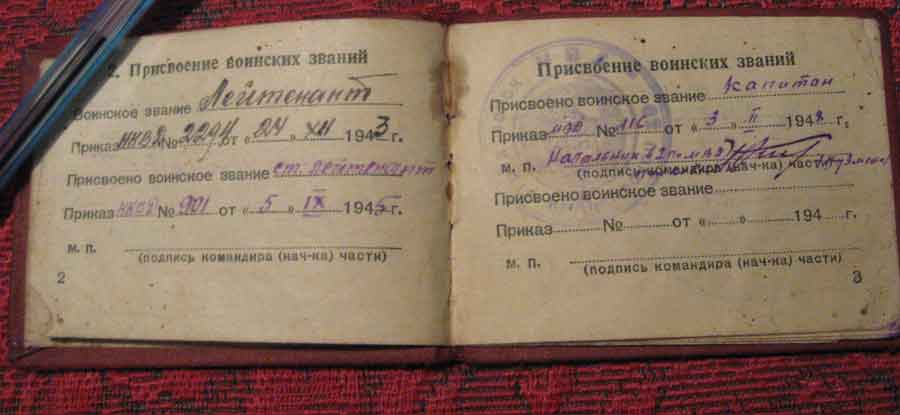 2. Присвоение воинских званий
Воинское звание Лейтенант
Приказ НКВД № 2294 от «24» XII 1943 г.
Присвоено воинское звание ст. лейтенант
Приказ НКВД № 901 от «5» IX 1945 г.
м. п.
(подпись командира (нач-ка) части)
2
Присвоение воинских званий
Присвоено воинское звание Капитан
Приказ МВД № 116 от «3» II 1948 г.
м. п. Начальник
(подпись командира (нач-ка) части)
Присвоено воинское звание
Приказ № от « » 194 г.
м. п.
(подпись командира (нач-ка) части)
3